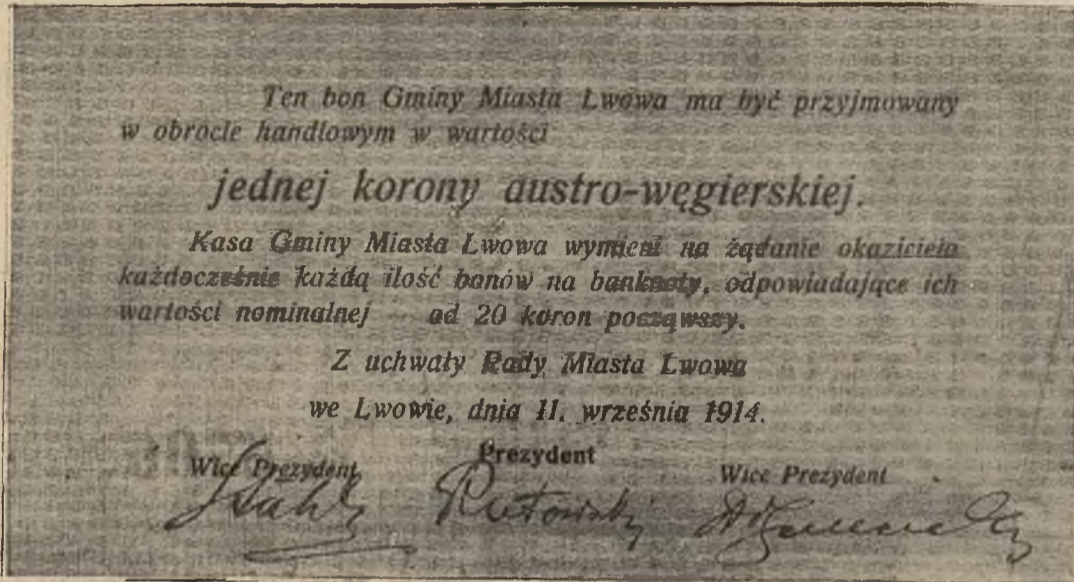 Ten bon Gminy Miasta Lwowa ma być przyjmowany
w obrocie handlowym w wartości
jednej korony austro-węgierskiej.
Kasa Gminy Miasta Lwowa wymieni na żądanie okaziciela
każdocześnie każdą ilość bonów na banknoty, odpowiadające ich
wartości nominalnej od 20 koron począwszy.
Z uchwały Rady Miasta Lwowa
we Lwowie, dnia 11. września 1914.
Wice Prezydent Prezydent Wice Prezydent
Stahl Rutowski